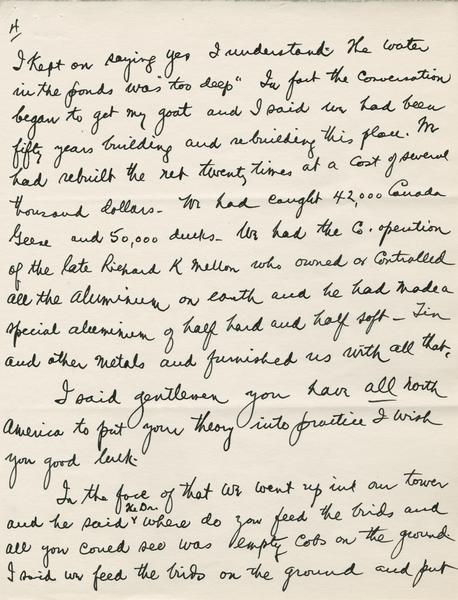 4
I kept on saying yes I understand. The water
in the ponds was "too deep" In fact the conversation
began to get my goat and I said we had been
fifty years building and rebuilding this place. We
had rebuilt the net twenty times at a cost of several
thousand dollars - We had caught 42,000 Canada
Geese and 50,000 ducks - We had the Co. opention
of the late Richard K Mellon who owned or controlled
all the aluminum on earth and he had made a
special aluminum of half hard and half soft - Tin
and other metals and furnished us with all that.
I said gentlemen you have all north
America to put your theory into practice I wish
you good luck.
In the face of that we went up into our tower
the Dr.
and he said where do you feed the birds and
all you coued see was empty cobs on the ground.
I said we feed the birds on the ground and put